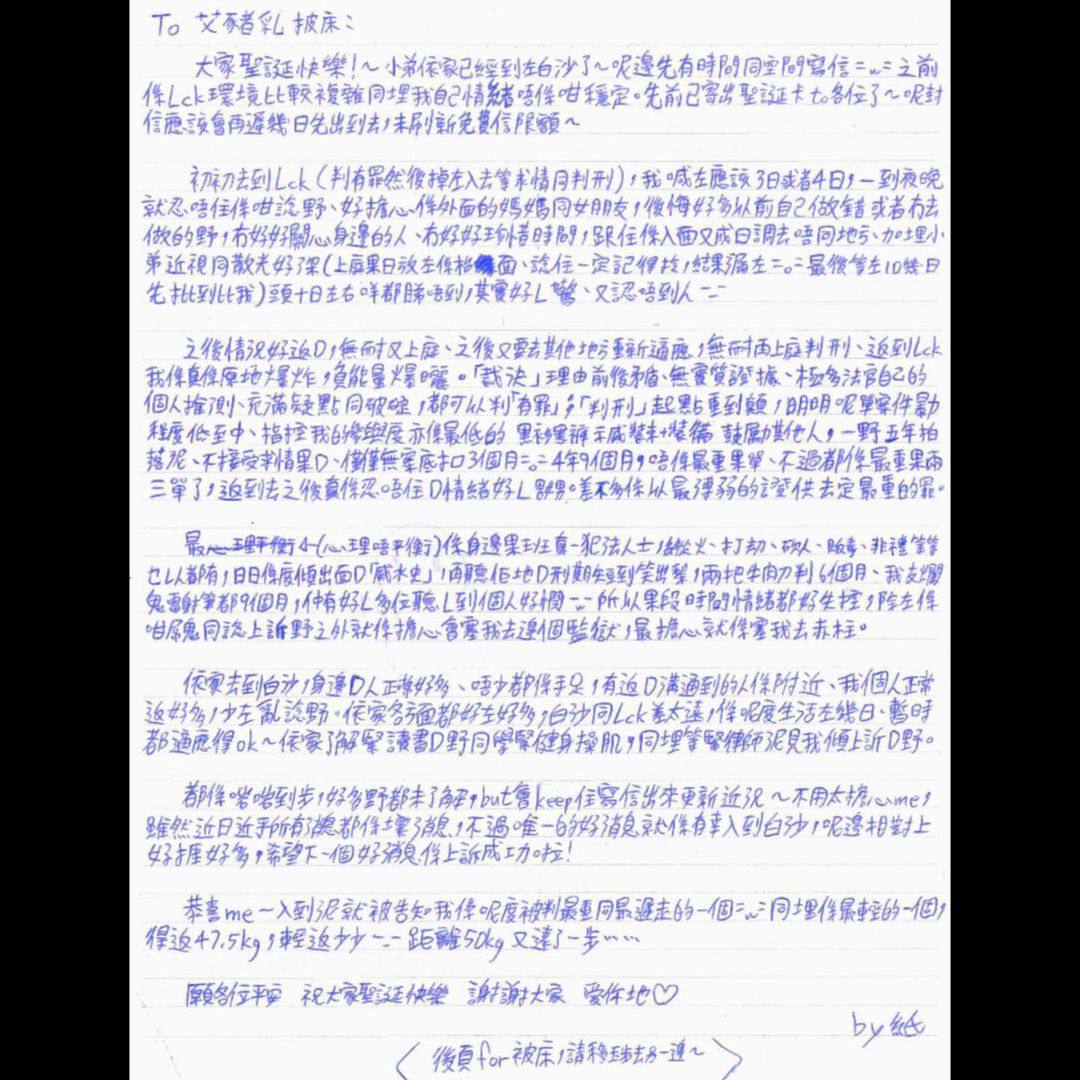 To 艾豬乳披床：
大家聖誕快樂！～小弟依家已經到左白沙了～呢邊先有時間同空間寫信=w=之前
係Lck環境比較複雜同埋我自己情緒唔係咁穩定。先前已寄出聖誕卡to各位了～呢封
信應該會再遲幾日先出到去，未刷新免費信限額～
初初去到Lck（判有罪然後掉左入去等求情同判刑），我喊左應該3日或者4日，一到夜晚
就忍唔住係咁諗野、好擔心係外面的媽媽同女朋友，後悔好多以前自己做錯或者冇去
做的野，冇好好關心身邊的人、冇好好珍惜時間，跟住係入面又成日調去唔同地方、加埋小
弟近視同散光好深（上庭果日放左係枱面、諗住一定記得拎，結果漏左=o=最後等左10幾日
先批到比我）頭十日左右咩都睇唔到，其實好L驚、又認唔到人-.-
之後情況好返D，無耐又上庭、之後又要去其他地方重新適應，無耐再上庭判刑、返到Lck
我係真係原地爆炸，負能量爆曬。「裁決」理由前後矛盾、無實質證據、極多法官自己的
個人推測、充滿疑點同破碇，都可以判「有罪」，「判刑」起點重到顛，明明呢單案件暴力
程度低至中、指控我的參與度亦係最低的 黑衫黑褲示威裝束+裝備 鼓勵其他人，一野五年拍
落泥、不接受求情果D、僅僅無案底扣3個月=o=4年9個月，唔係最重果單、不過都係最重果兩
三單了，返到去之後真係忍唔住D情緒好L嬲。差不多係以最薄弱的證供去定最重的罪。
最心理平衡↓（心理唔平衡）係身邊果班真-犯法人士，縱火、打劫、砍人、販毒、非禮等等
乜L人都有，日日係度傾出面D「威水史」，再聽佢地D刑期短到笑出聲，兩把牛肉刀判6個月、我支爛
鬼雷射筆都9個月，仲有好L多位聽L到個人好惘-w-所以果段時間情緒都好失控，除左係
咁屌鬼同諗上訴野之外就係擔心會塞我去邊個監獄，最擔心就係塞我去赤柱。
依家去到白沙，身邊D人正常好多、唔少都係手足，有返D溝通到的人係附近、我個人正常
返好多，少左亂諗野。依家各方面都好左好多，白沙同Lck差太遠，係呢度生活左幾日、暫時
都適應得ok～依家了解緊讀書D野同學緊健身操肌，同埋等緊律師泥見我傾上訴D野。
都係啱啱到步，好多野都未了解，but會keep住寫信出來更新近況～不用太擔心me，
雖然近日近乎所有消息都係壞消息，不過唯一的好消息就係有幸入到白沙，呢邊相對上
好捱好多，希望下一個好消息係上訴成功啦！
恭喜me一入到泥就被告知我係呢度被判最重同最遲走的一個=w=同埋係最輕的一個，
得返47.5kg，輕返少少-.- 距離50kg又遠了一步……
願各位平安 祝大家聖誕快樂 謝謝大家 愛你地♡
by 紙
〈後頁for被床，請移玉步去另一邊～〉